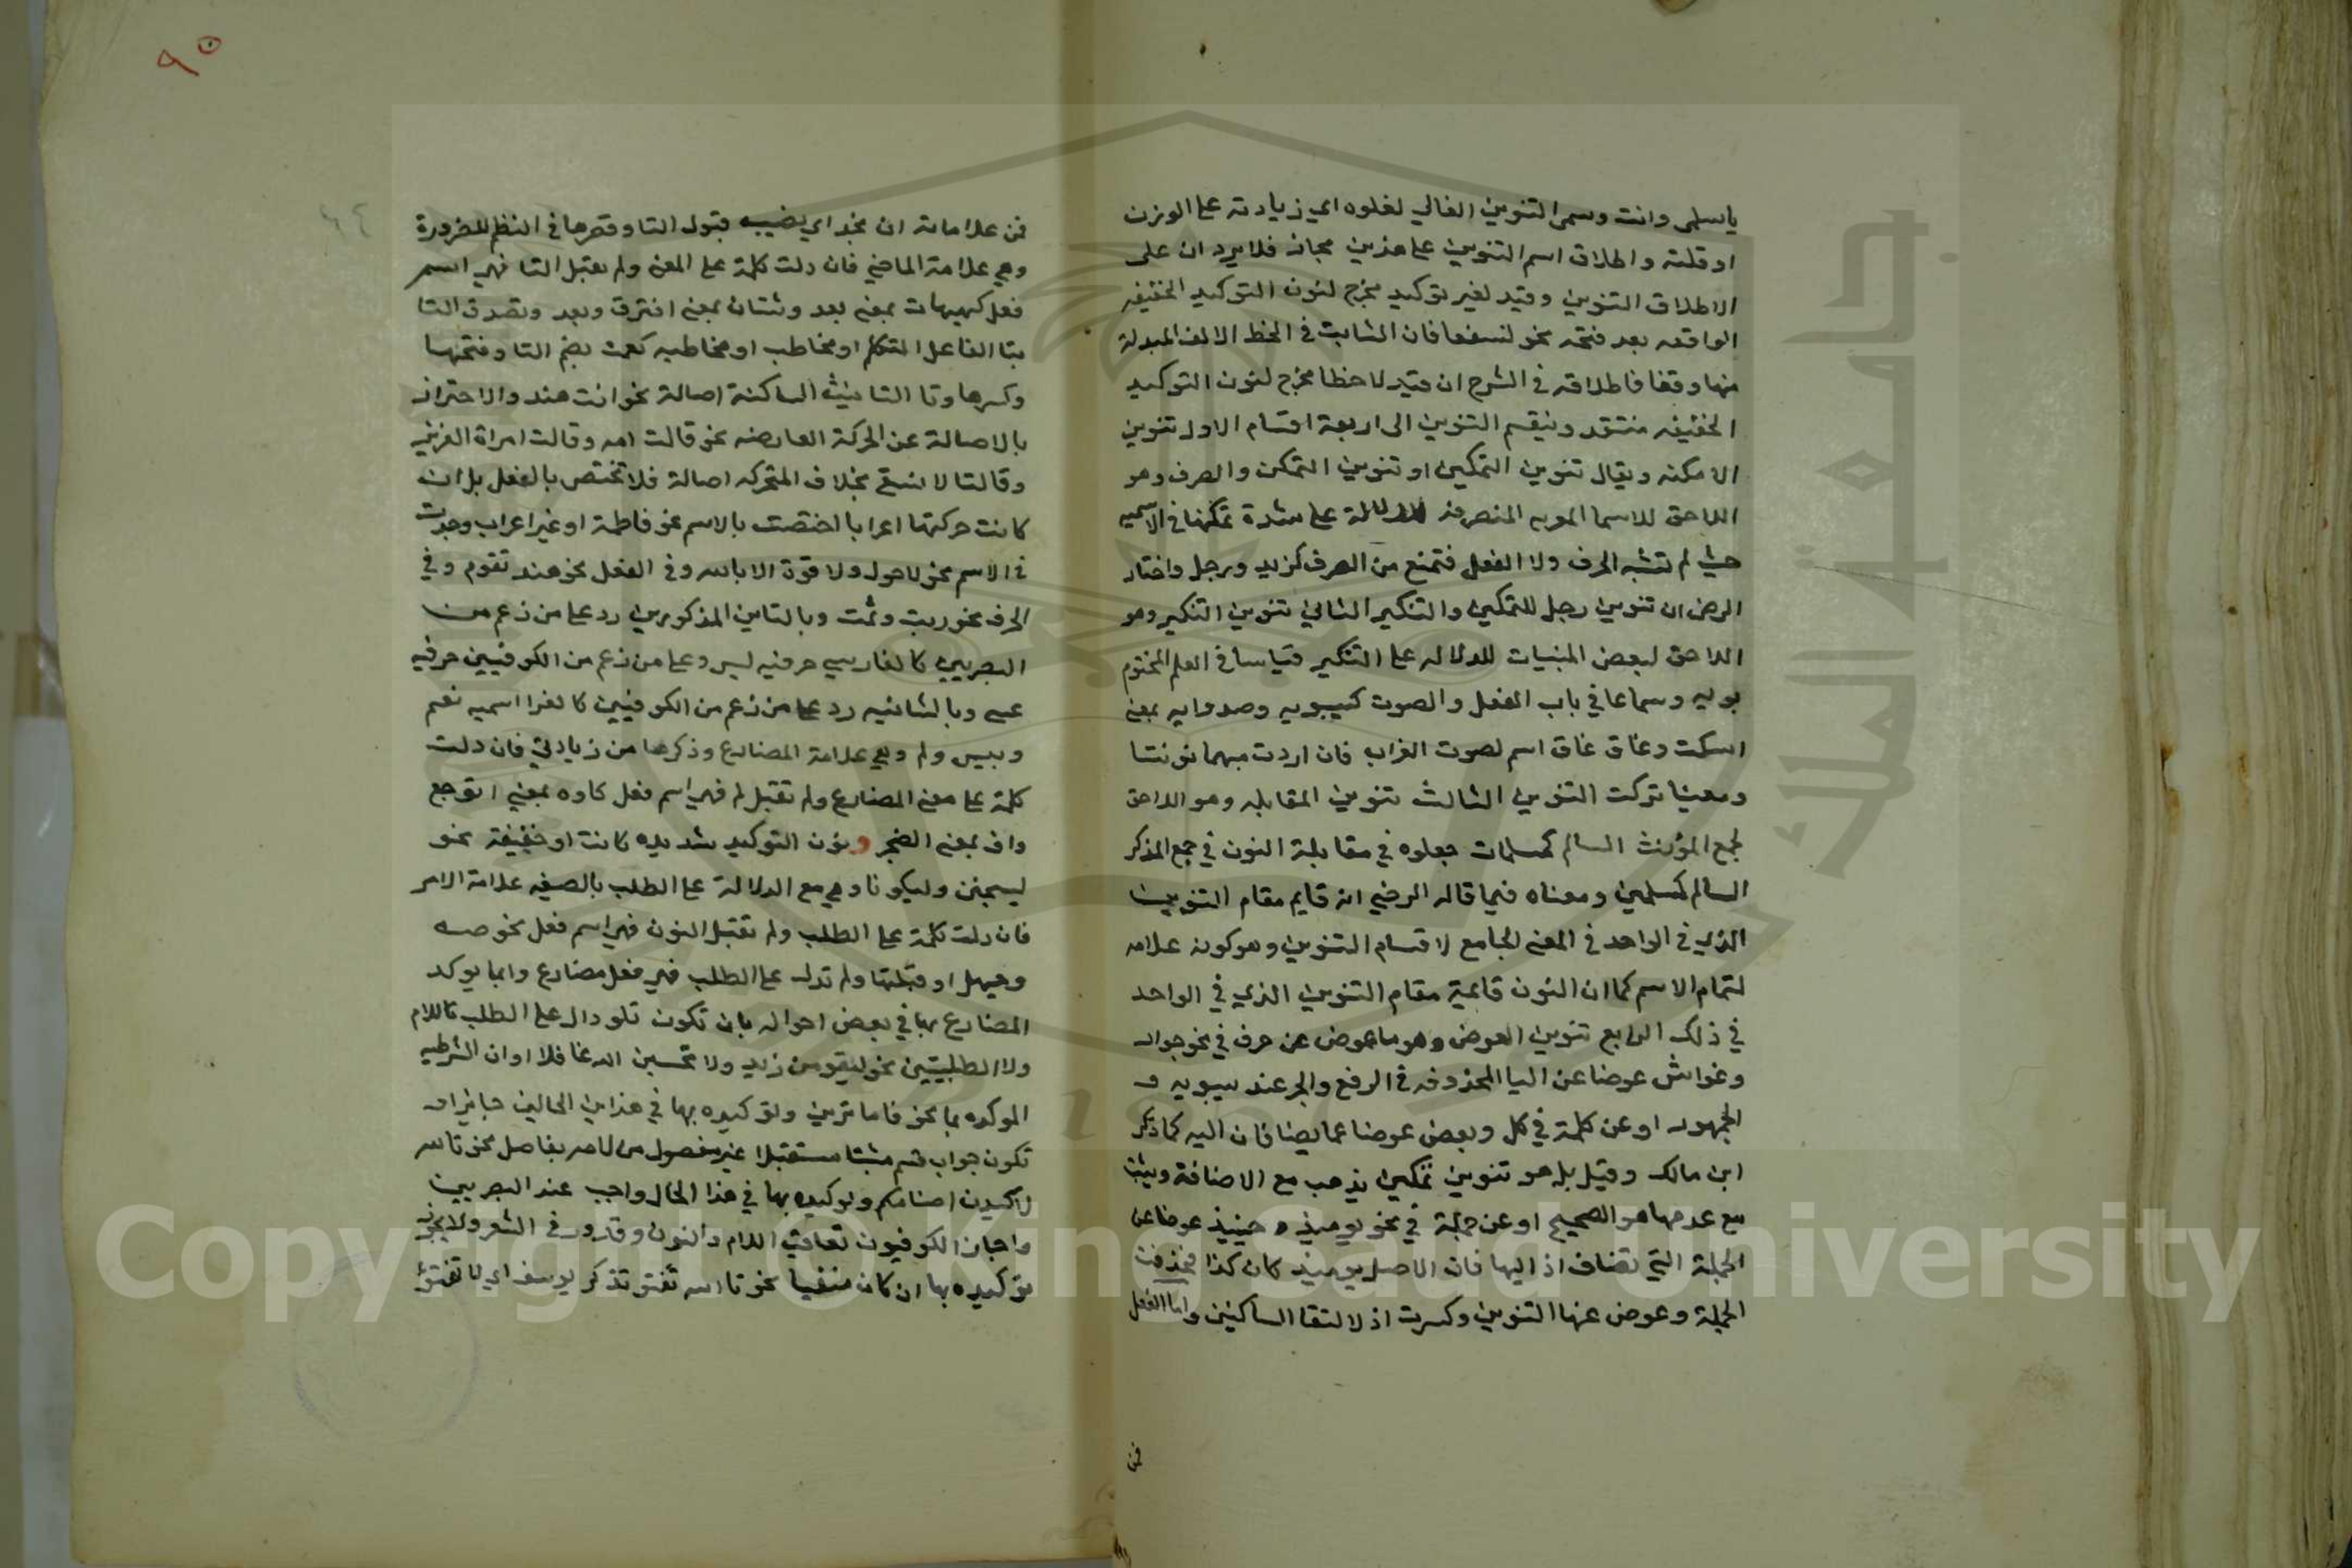 ياسلمى وانت وسمى التنوين الغالي لغلوه اي زيادته على الوزن
او قلته واطلاق اسم التنوين على هذين مجاز فلا يرد ان على
الاطلاق التنوين وقيد لغير توكيد مخرج لنون التوكيد الخفيفه
الواقعه بعد فتحه نحو لنسفعا فان الثابت في الخط الالف المبدلة
منها وقفا فاطلاقه في الشرح ان قيد لاخطا مخرج لنون التوكيد
الخفيفه منتقد وينقسم التنوين الى اربعة اقسام الاول تنوين
الامكنه ويقال تنوين التمكين او تنوين التمكن والصرف وهو
اللاحق للاسما المعربه المنصرفه للدلالة على شدة تمكنها في الاسميه
حيث لم تشبه الحرف ولا الفعل فتمنع من الصرف كزيد ورجل واختار
الرضى ان تنوين رجل للتمكين والتنكير الثاني تنوين التنكير وهو
اللاحق لبعض المبنيات للدلاله على التنكير قياسا في العلم المختوم
بويه وسماعا في باب الفعل والصوت كسيبويه وصه وايه بمعنى
اسكت وغاق غاق اسم لصوت الغراب فان اردت مبهما نونتا
ومعينا تركت التنوين الثالث تنوين المقابله وهو اللاحق
لجمع المؤنث السالم كمسلمات جعلوه في مقابلة النون في جمع المذكر
السالم كمسلمين ومعناه فيما قاله الرضي انه قايم مقام التنوين
الذي في الواحد في المعنى الجامع لاقسام التنوين وهو كونه علامه
لتمام الاسم كما ان النون قايمة مقام التنوين الذي في الواحد
في ذلك الرابع تنوين العوض وهو ما عوض عن حرف في نحو جوار
وغواش عوضا عن اليا المحذوفه في الرفع والجر عند سيبويه و
الجمهور او عن كلمة في كل وبعض عوضا عما يضافان اليه كما ذكر
ابن مالك وقيل بل هو تنوين تمكين يذهب مع الاضافة ويثبت
مع عدمها هو الصحيح او عن جملة في نحو يوميذ و حينيذ عوضا عن
الجملة التي تضاف اذ اليها فان الاصل يوميذ كان كذا فحذفت
الجملة وعوض عنها التنوين وكسرت اذ لالتقا الساكنين واما الفعل
فمن
٩٥
فمن علاماته ان نجد اي يضيب قبول التا وقصرها في النظم للضرورة
وهي علامة الماضي فان دلت كلمة على المعنى ولم تقبل التا فهي اسم
فعل كهيهات بمعنى بعد وشتان بمعنى افترق وبعد وتصدق التا
بتا الفاعل المتكلم او مخاطب او مخاطبه كقمت بضم التا وفتحها
وكسرها وتا التانيث الساكنة اصالة نحو انت هند والاحتراز
بالاصالة عن الحركة العارضه نحو قالت امه وقالت امراة العزيز
وقالتا لا نسقي بخلاف المتحركه اصالة فلا تختص بالفعل بل ان
كانت حركتها اعرابا اختصت بالاسم نحو فاطمة او غير اعراب وجدت
في الاسم نحو لا حول ولا قوة الا بالله وفي الفعل نحو هند تقوم وفي
الحرف نحو ربت وثمت وبالتاين المذكورين رد على من زعم من
البصريين كالفارسي حرفيه ليس وعلى من زعم من الكوفيين حرفيه
عسى وبالثانيه رد على من زعم من الكوفيين كالفرا اسميه نعم
وبيس ولم وهي علامة المضارع وذكرها من زيادتي فان دلت
كلمة على معنى المضارع ولم تقبل لم فهي اسم فعل كاوه بمعنى اتوجع
واف بمعنى اتضجر ونون التوكيد شديده كانت او خفيفة نحو
ليسجنن وليكونا وهي مع الدلالة على الطلب بالصيغه علامة الامر
فان دلت كلمة على الطلب ولم تقبل النون فهي اسم فعل نحو صه
وحيهل او قبلتها ولم تدل على الطلب فهي فعل مضارع وانما يوكد
المضارع بها في بعض احواله بان تكون تلو دال على الطلب كاللام
ولا الطلبيتين نحو ليقومن زيد ولا تحسبن الله غافلا او ان الشرطيه
الموكده بما نحو فاما ترين وتوكيده بها في هذاين الحالين جايز او
تكون جواب قسم مثبتا مستقبلا غير مفصول من لامه بفاصل نحو تالله
لاكيدن اصنامكم وتوكيده بها في هذا الحال واجب عند البصريين
واجاز الكوفيون تعاقب اللام والنون وقد ورد في الشعر ولا يجوز
توكيده بها ان كان منفيا نحو تالله تفتو تذكر يوسف اي لا تفتؤ
جامعة الملك سعود
1957
Copyright © King Saud University